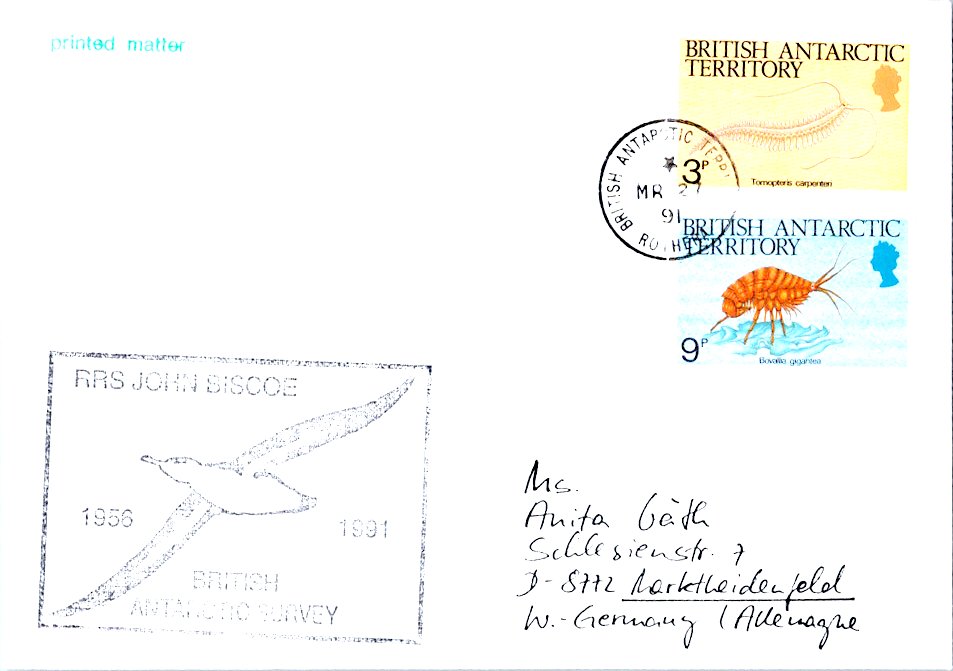 printed matter
BRITISH ANTARCTIC
TERRITORY
3P
Tomopteris carpenteri
BRITISH ANTARCTIC TERRI
MR 27
91
ROTHERA
BRITISH ANTARCTIC
TERRITORY
9P
Bovallia gigantea
RRS JOHN BISCOE
1956
1991
BRITISH
ANTARCTIC SURVEY
Ms.
Anita Gäth
Schlesienstr. 7
D-8772 Marktheidenfeld
W.-Germany (Allemagne